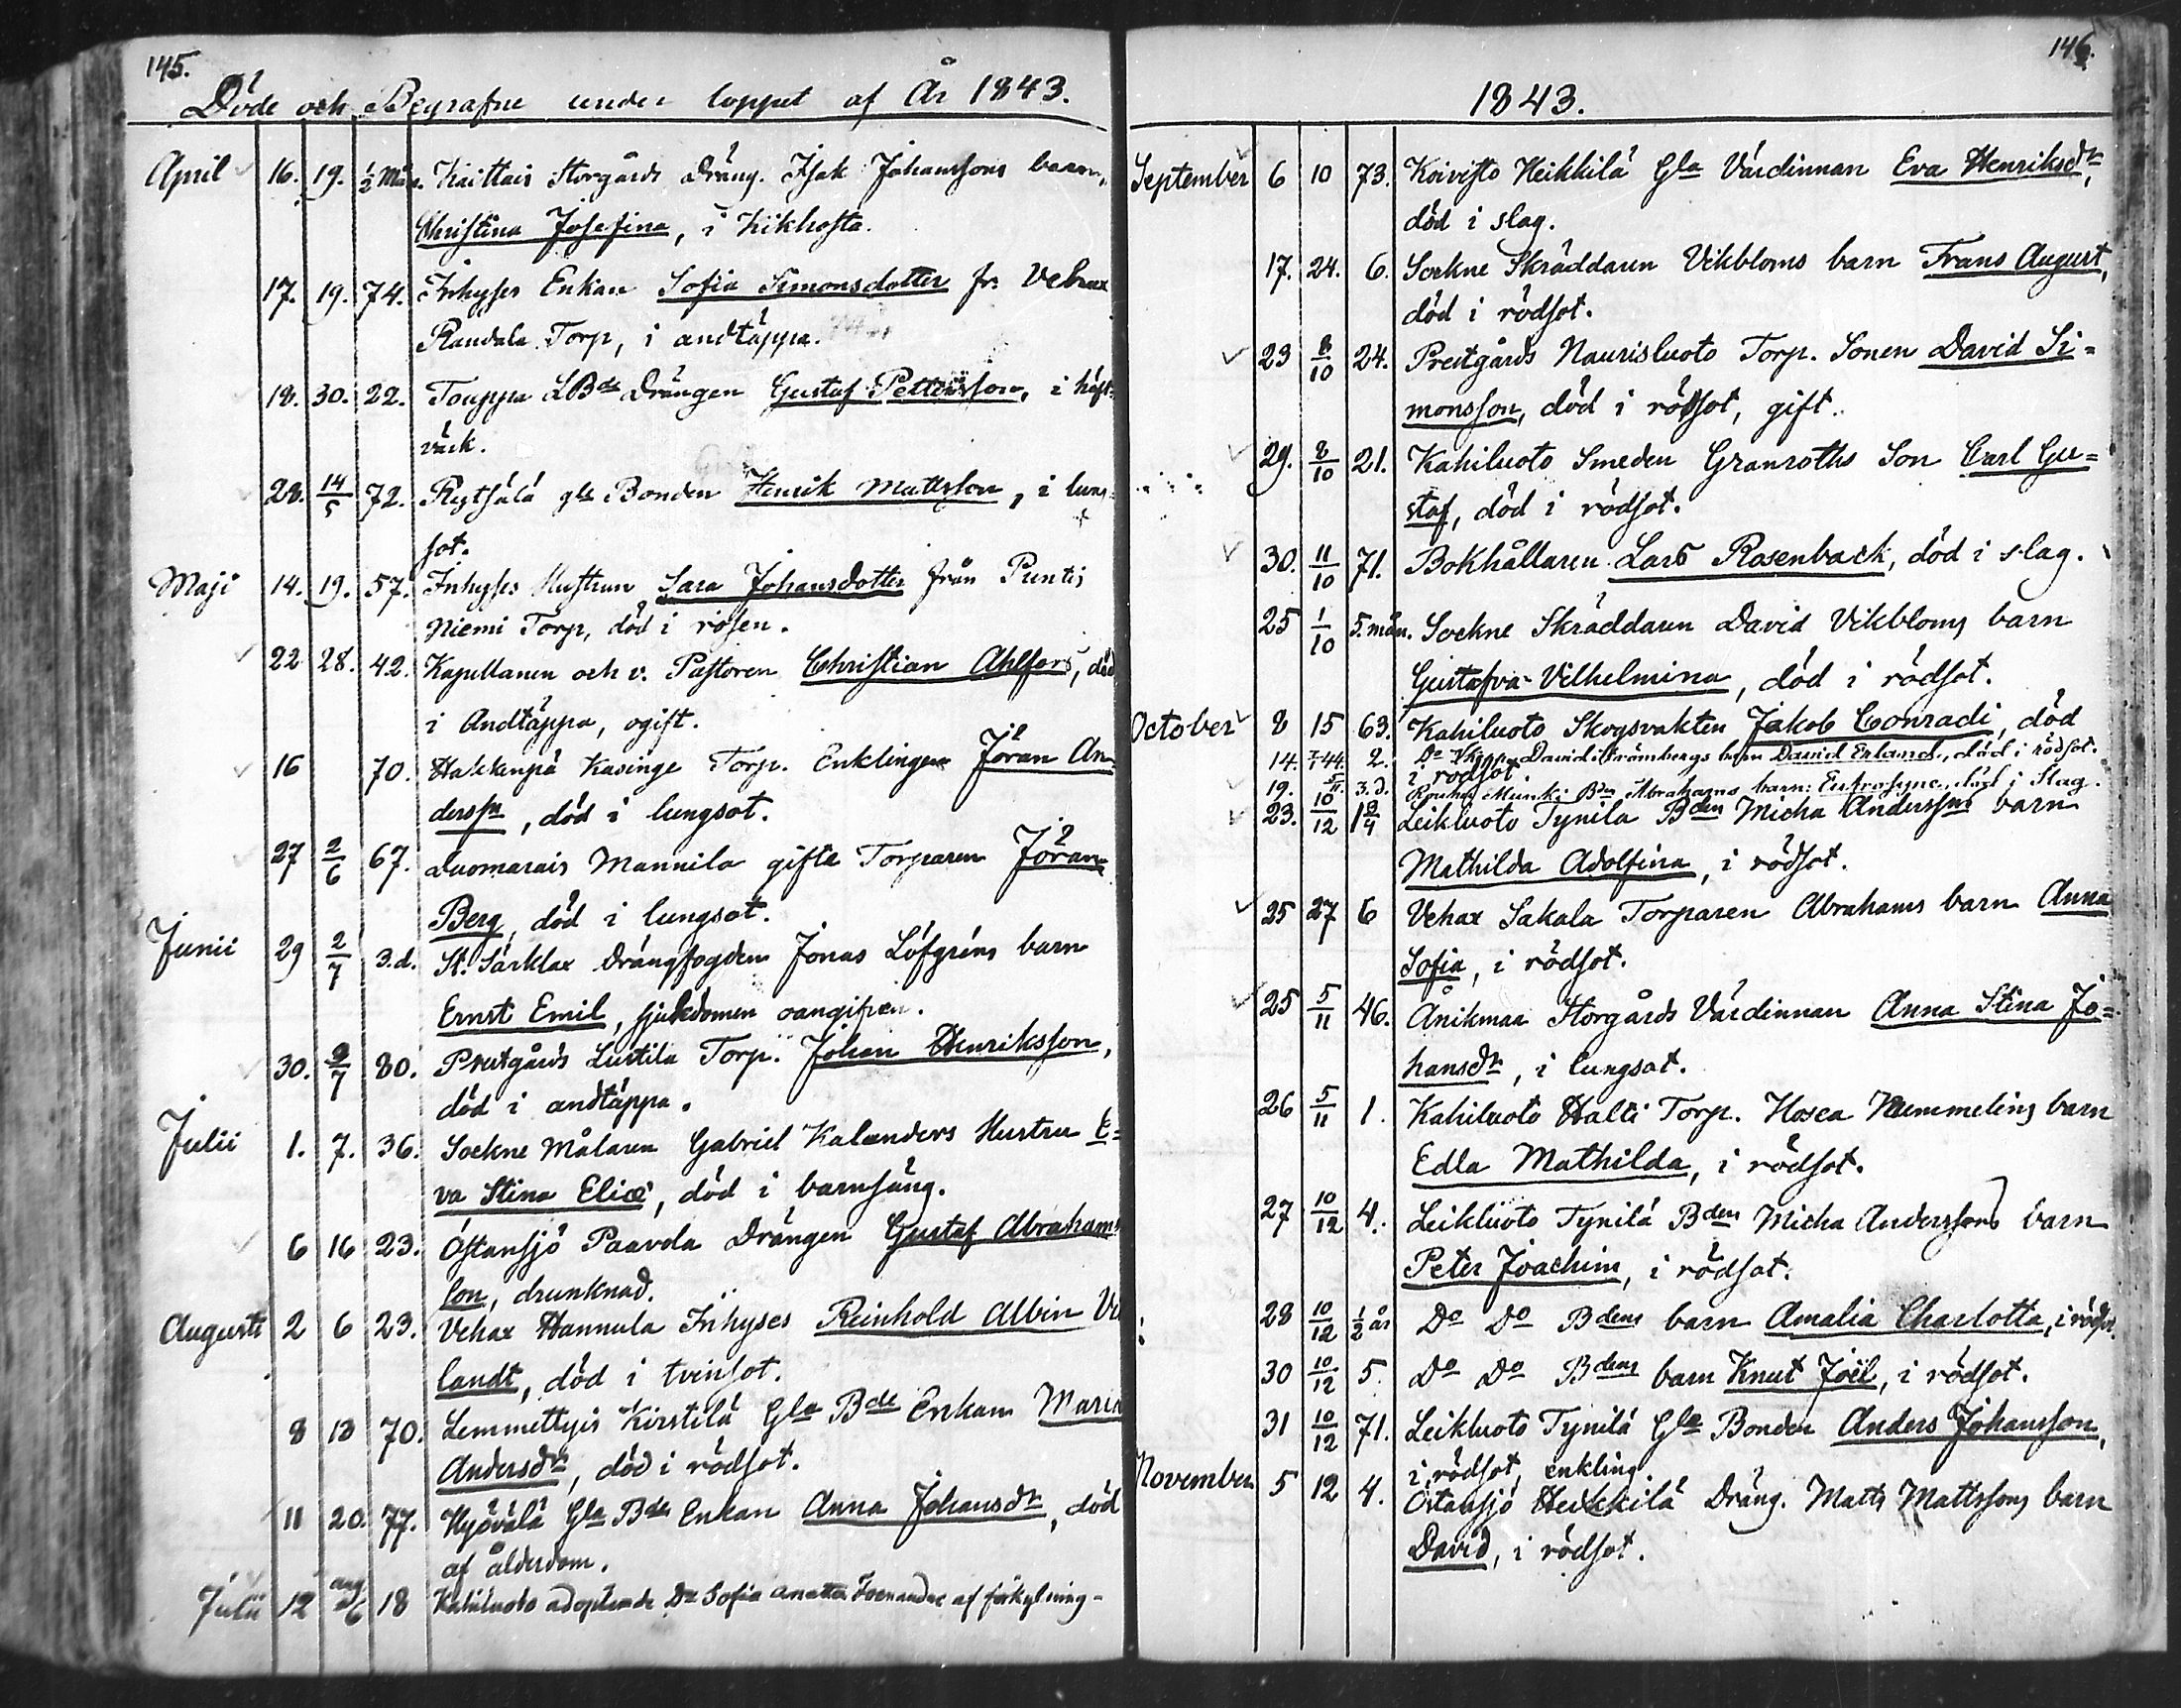 145.
Döde och Begrafne under loppet af År 1843.
April 16. 19. ½ Mån. Kaittais Storgårds Dräng. Isak Johanssons barn,
Christina Josefina, i Kikhosta.
17. 19. 74. Inhyses Enkan Sofia Simonsdotter fr. Vehax
Randala Torp, i andtäppa.
18. 30. 22. Touppa LBds Drängen Gustaf Pettersson, i häft-
värk.
28. 14/5 72. Rytsälä gle Bonden Henrik Mattsson, i lung-
sot.
Maji 14. 19. 57. Inhyses Hustrun Sara Johansdotter från Puntis
Niemi Torp, död i rosen.
22 28. 42. Kapellanen och v. Pastoren Christian Ahlfors, död
i Andtäppa, ogift.
16 70. Hakkenpä Kasinge Torp. Enklingen Jöran An
derssn, död i lungsot.
27 2/6 67. Luomarais Mannila gifte Torparen Jöran
Berg, död i lungsot.
Junii 29 2/7 3.d. St. Sarklax Drängfogden Jonas Löfgréns barn
Ernst Emil, sjukdomen oangifven.
30. 9/7 80. Prestgårds Lustila Torp. Johan Henriksson,
död i andtäppa.
Julii 1. 7. 36. Sockne Målaren Gabriel Kalanders Hustru E=
va Stina Elice, död i barnsäng.
6 16 23. Östansjö Paavola Drängen Gustaf Abrahams
son, drunknad.
Augusti 2 6 23. Vehax Hannula Inhyses Reinhold Albin Ve
landt, död i tvinsot.
8 13 70. Lemmettyis Kirstilä Gla Bde Enkan Maria
Andersdr, död i rödsot.
11 20. 77. Hyövälä Gla Bde Enkan Anna Johansdr, död
af ålderdom.
Julii 12 aug 6 18 Kahiluoto adopterade Dr Sofia Anetta af förkylning-
146.
1843.
September 6 10 73. Koivisto Heikkilä Gla Värdinnan Eva Henriksdr,
död i slag.
17. 24. 6. Sockne Skräddaren Vikbloms barn Frans August,
död i rödsot.
23 8/10 24. Prestgårds Naurisluoto Torp. Sonen David Si=
monsson, död i rödsot, gift.
29. 8/10 21. Kahiluoto Smeden Granroths Son Carl Gu=
staf, död i rödsot.
30. 11/10 71. Bokhållaren Lars Rosenback, död i slag.
25 1/10 5.mån. Sockne Skräddaren David Vikbloms barn
Gustafva Vilhelmina, död i rödsot.
October 8 15 63. Kahiluoto Skogsvakten Jakob Conradi, död
14. 7/1 44. 2. Do David Strömbergs barn David Erland, död i rödsot.
i rödsot.
19. 5/11. 3.d. Munki Bdn Abrahams barn: Eufrosyne, död i Slag.
23. 10/12 1¾ Leikluoto Tynila Bden Micha Anderssns barn
Mathilda Adolfina, i rödsot.
25 27 6 Vehax Sakala Torparen Abrahams barn Anna
Sofia, i rödsot.
25 5/11 46. Änikmaa Storgårds Värdinnan Anna Stina Jo=
hansdr, i lungsot.
26 5/11 1. Kahiluoto Halti Torp. Hosea Nummelins barn
Edla Mathilda, i rödsot.
27 10/12 4. Leikluoto Tynilä Bden Micha Anderssons barn
Peter Joachim, i rödsot.
28 10/12 ½ år Do Do Bdens barn Amalia Charlotta, i rödsot.
30 10/12 5. Do Do Bdens barn Knut Joël, i rödsot.
31 10/12 71. Leikluoto Tynilä Gla Bonden Anders Johansson,
i rödsot, enkling
November 5 12 4. Östansjö Heikkilä Dräng. Matts Mattssons barn
David, i rödsot.